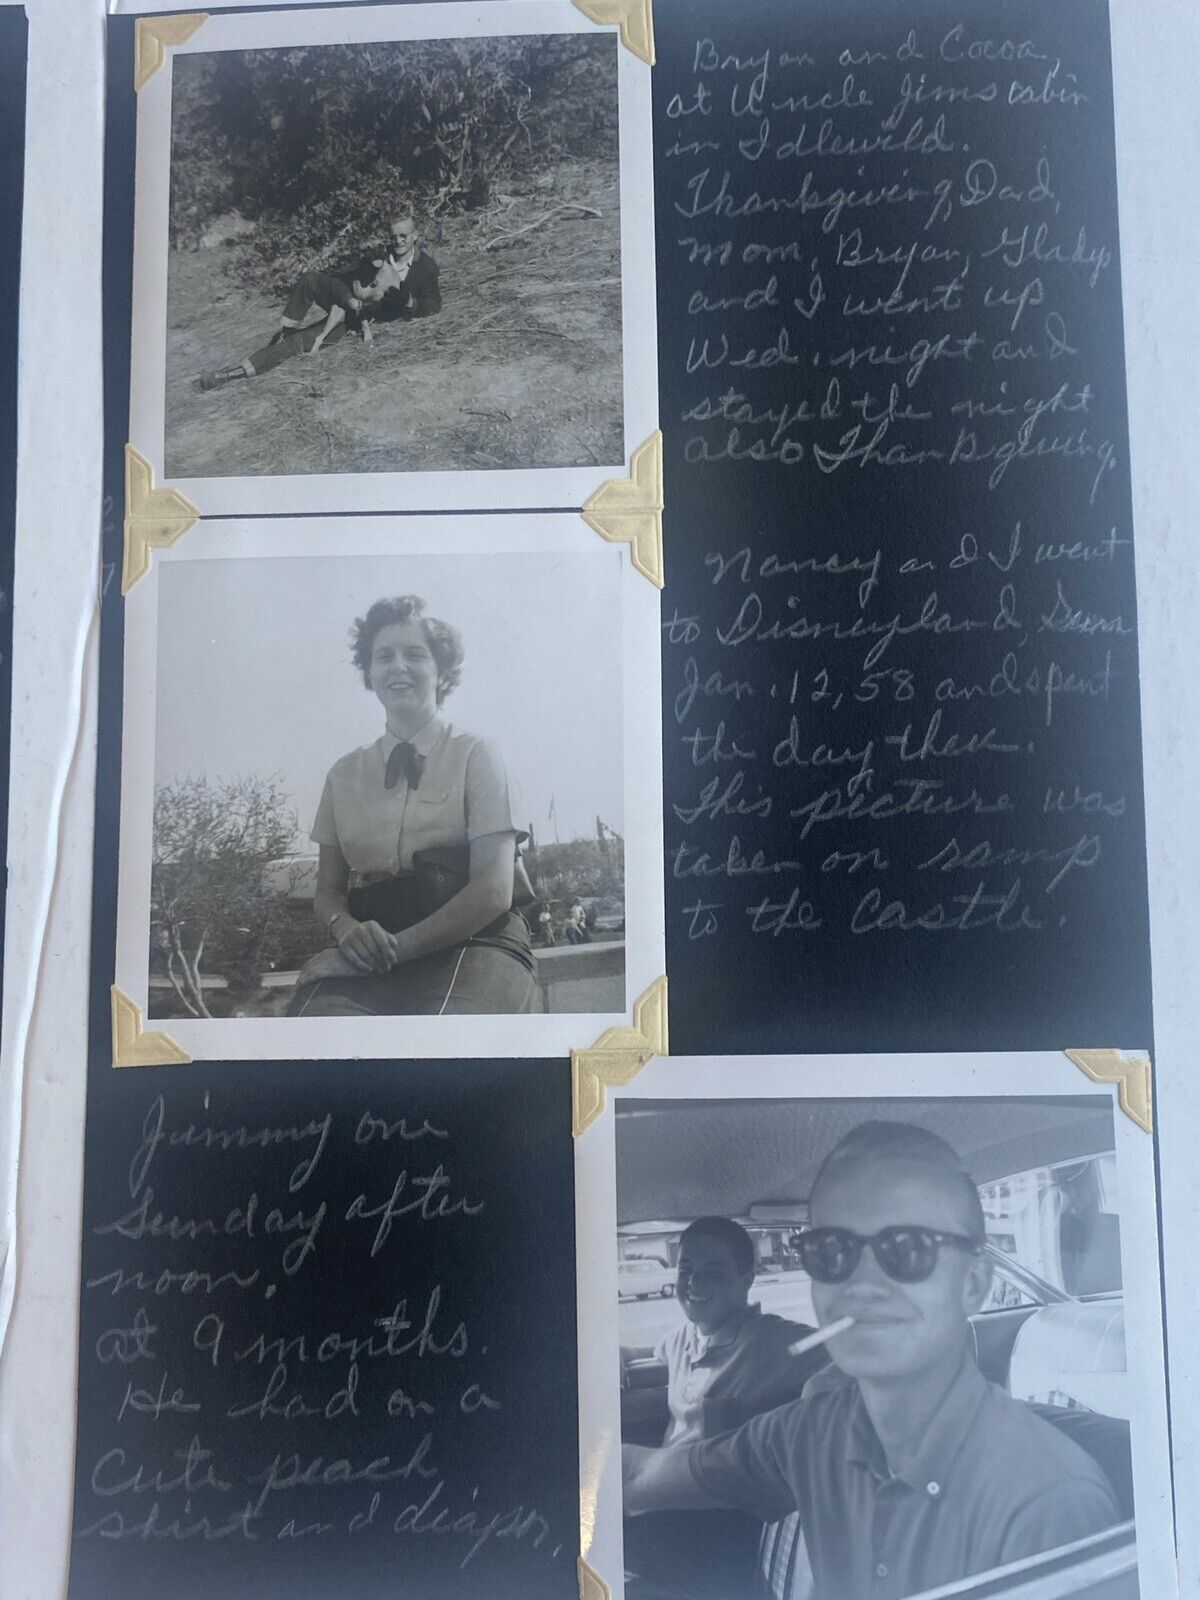 Bryan and Cocoa,
at Uncle Jims cabin
in Idlewild.
Thanksgiving, Dad,
Mom, Bryan, Gladys
and I went up
Wed. night and
stayed the night
also Thanksgiving.
Nancy and I went
to Disneyland, Sun
Jan. 12, 58 and spent
the day there.
This picture was
taken on ramp
to the Castle.
Jimmy one
Sunday after
noon.
at 9 months.
He had on a
cute peach
shirt and diaper.